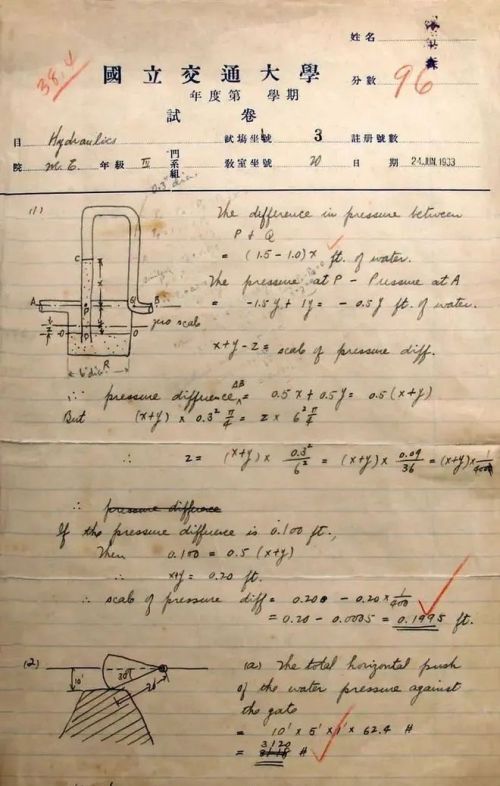 姓名
38.4
國立交通大學
分數 96
年度第 學期
試卷
目 Hydraulics 試場坐號 3 註冊號數
院 M. E. 年級 IV 門系組 教室坐號 20 日期 24 JUN. 1933
0.3" dia.
(1) The difference in pressure between
P & Q
= (1.5 - 1.0) x ft. of water.
The pressure at P - Pressure at A
= -1.5 y + 1 y = - 0.5 y ft. of water.
C
A
B
P
zero scale
O
O
R
6" dia.
x + y - z = scale of pressure diff.
∴ pressure difference AB = 0.5 x + 0.5 y = 0.5 (x+y)
But (x+y) x 0.3² π/4 = z x 6² π/4
∴ z = (x+y) x 0.3²/6² = (x+y) x 0.09/36 = (x+y) x 1/400
∴ pressure difference
If the pressure difference is 0.100 ft.,
Then 0.100 = 0.5 (x+y)
∴ x+y = 0.20 ft.
∴ scale of pressure diff = 0.200 - 0.20 x 1/400
= 0.20 - 0.0005 = 0.1995 ft.
(2) (a) The total horizontal push
10'
30°
20'
of the water pressure against
the gate
= 10' x 5' x 1' x 62.4 #
3120
= #